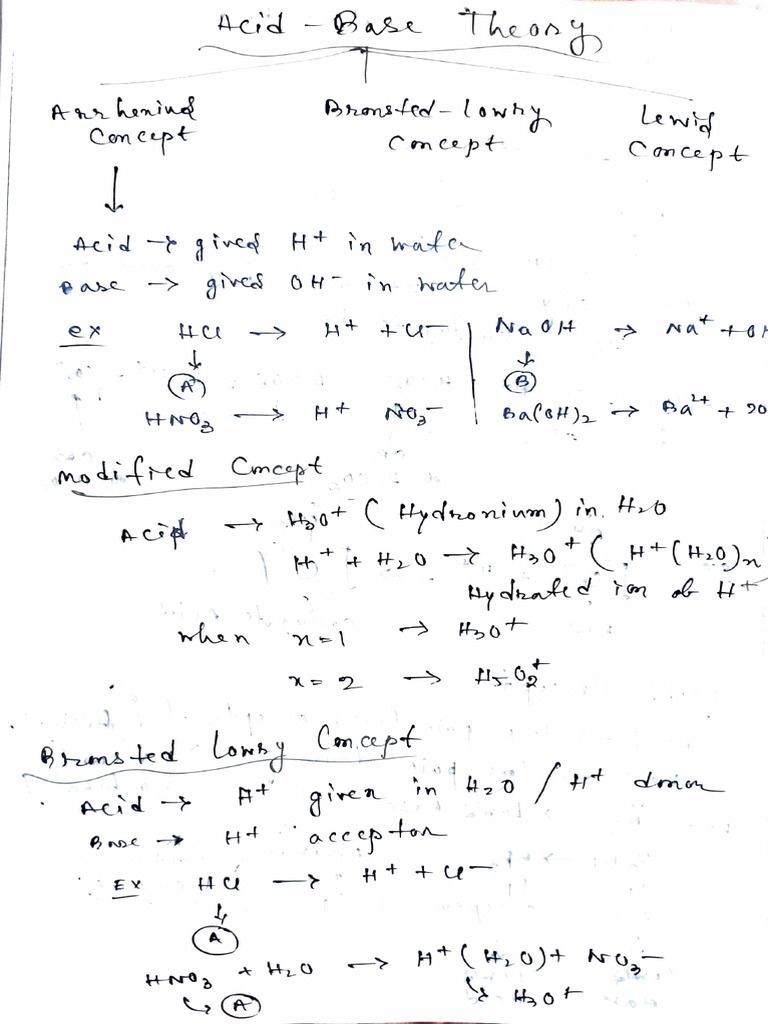 Acid - Base Theory
Arrhenius Concept
Bronsted-lowry Concept
Lewis Concept
↓
Acid → gives H⁺ in water
Base → gives OH⁻ in water
ex HCl → H⁺ + Cl⁻ | NaOH → Na⁺ + OH
↓ ↓
(A) (B)
HNO₃ → H⁺ NO₃⁻ | Ba(OH)₂ → Ba²⁺ + 2O
modified Concept
Acid → H₃O⁺ (Hydronium) in H₂O
H⁺ + H₂O → H₃O⁺ ( H⁺(H₂O)n
Hydrated ion of H⁺
when n=1 → H₃O⁺
n=2 → H₅O₂⁺
Bronsted Lowry Concept
Acid → H⁺ given in H₂O / H⁺ donor
Base → H⁺ acceptor
Ex HCl → H⁺ + Cl⁻
↓
(A)
HNO₃ + H₂O → H⁺(H₂O) + NO₃⁻
↳ (A) ↳ H₃O⁺